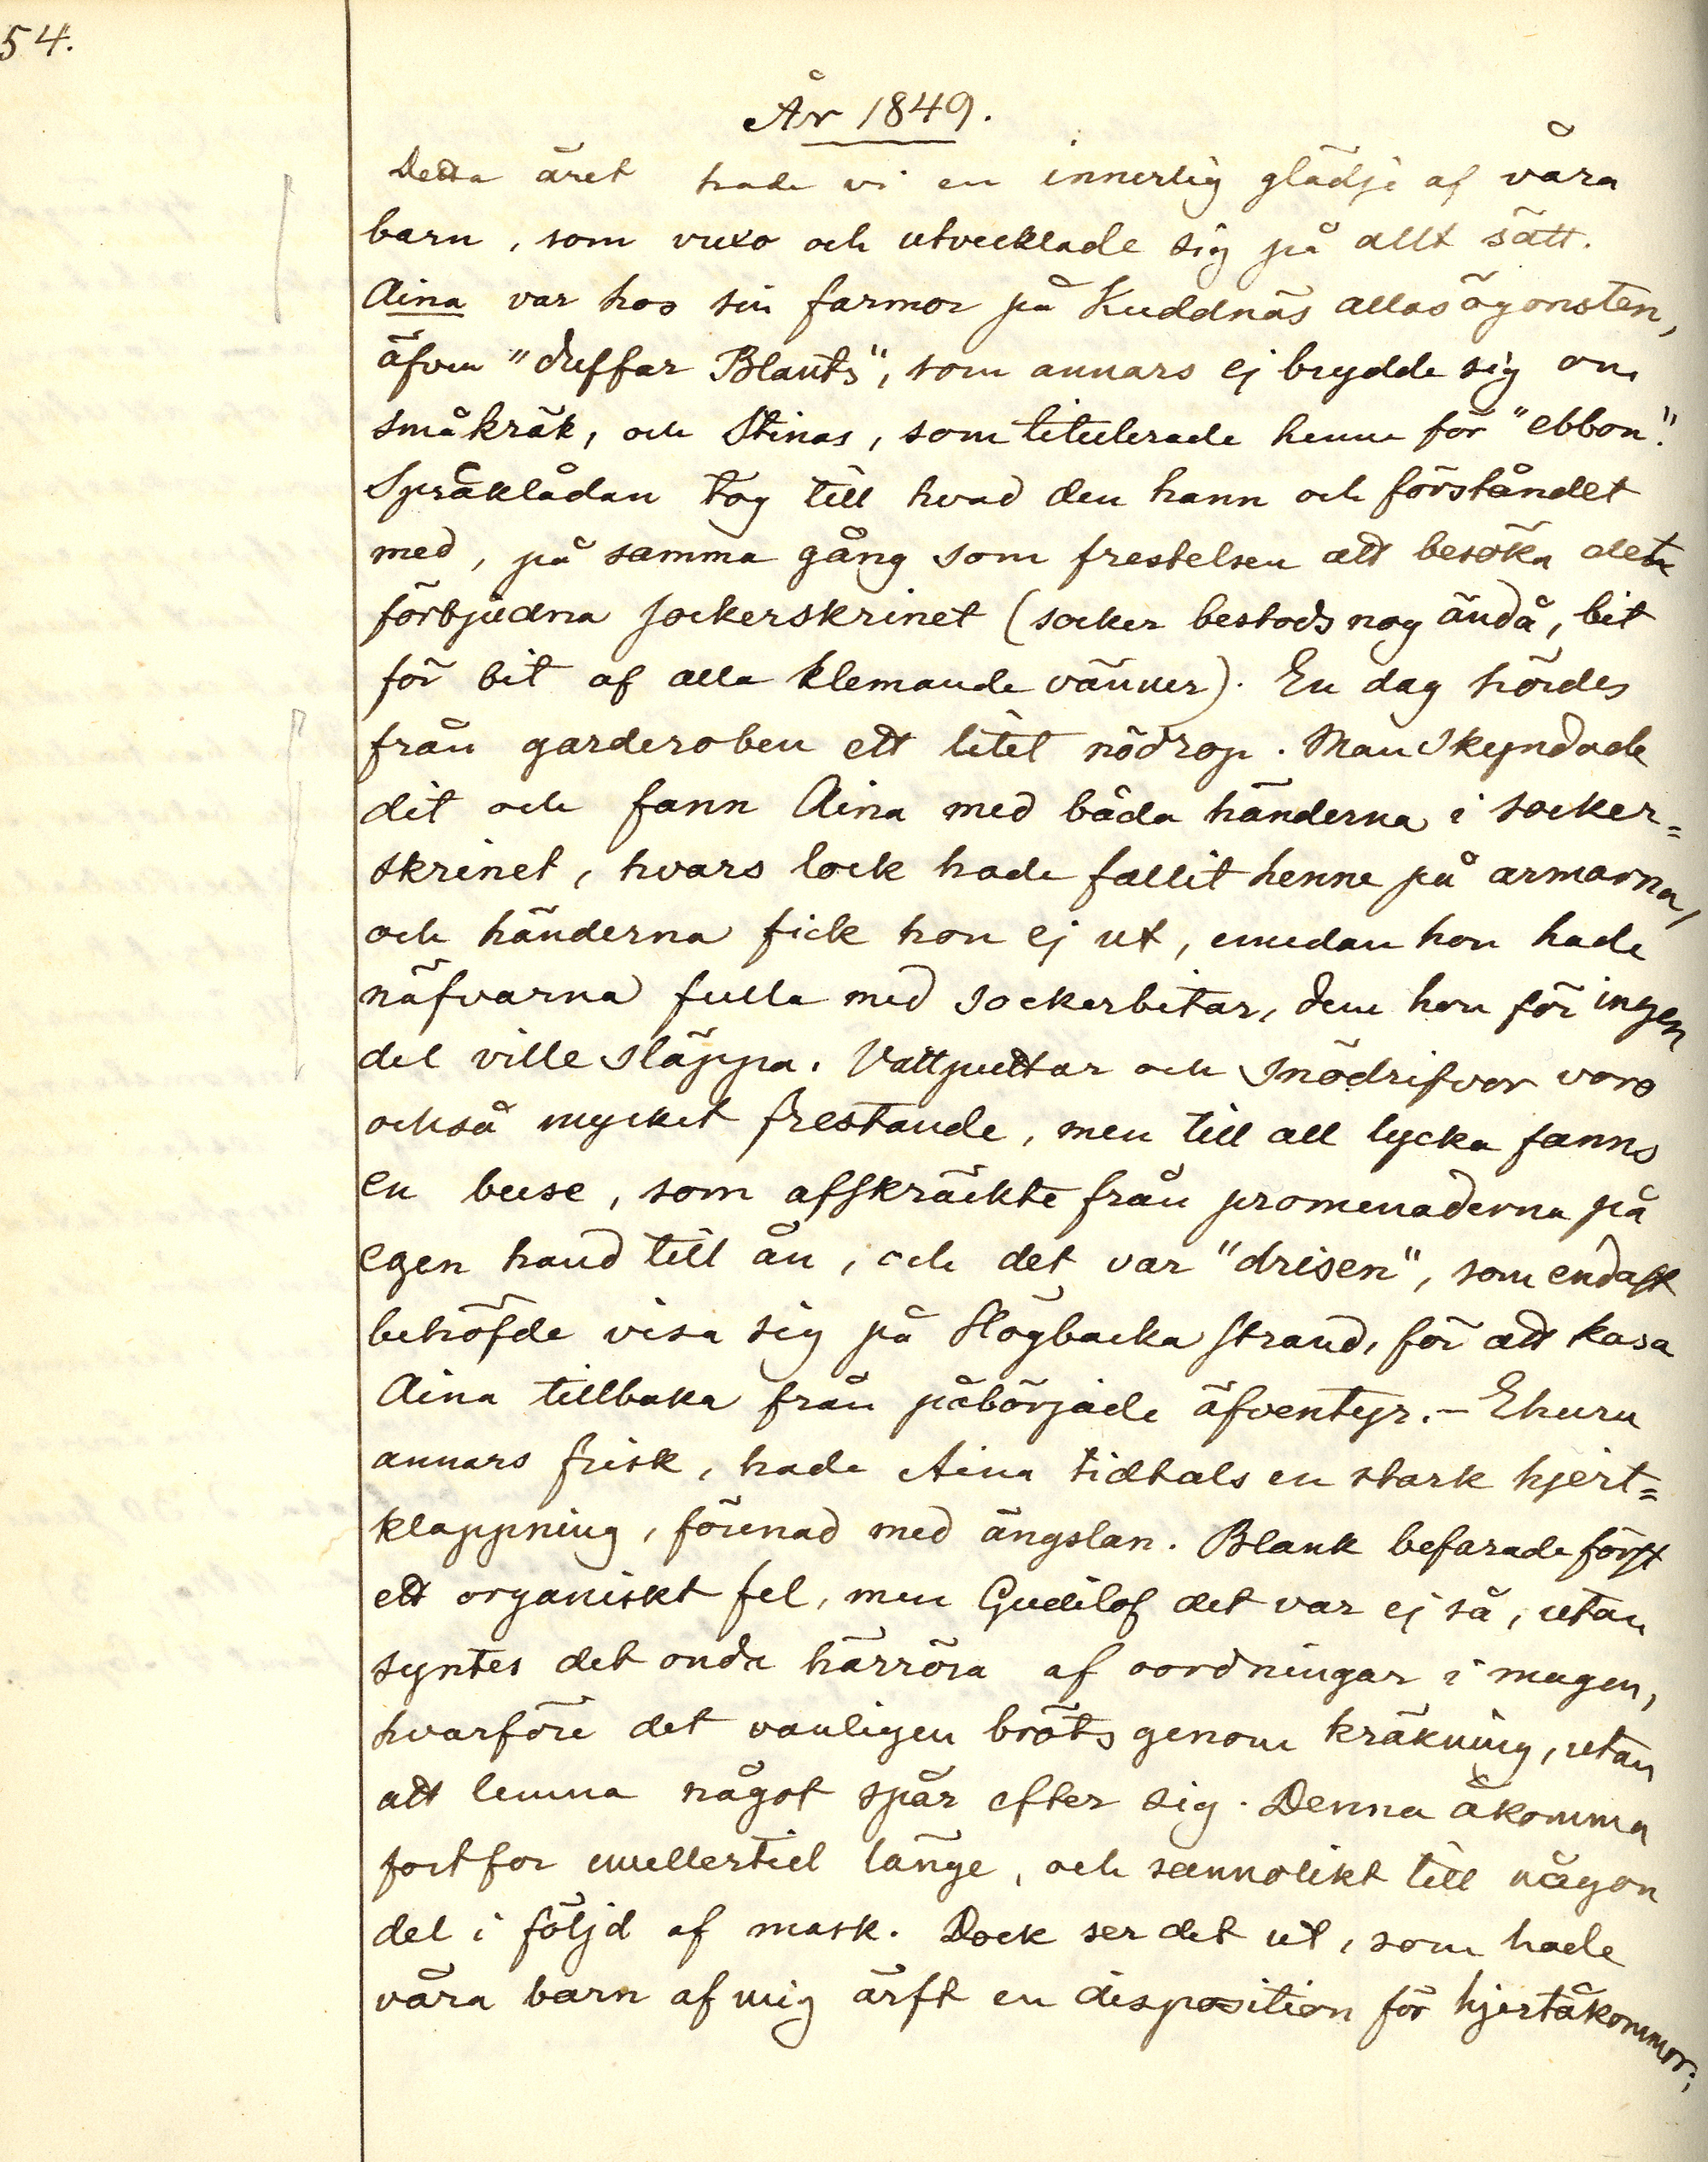 54.
År 1849.
Detta året hade vi en innerlig glädje af våra
barn, som vuxo och utvecklade sig på allt sätt.
Aina var hos sin farmor på Kuddnäs allas ögonsten,
äfven "duffar Blants", som annars ej brydde sig om
småkräk, och Stinas, som titulerade henne för "ebbon".
Språklådan tog till hvad den hann och förståndet
med, på samma gång som frestelsen att besöka det
förbjudna sockerskrinet (socker bestods nog ändå, bit
för bit af alla klemande vänner). En dag hördes
från garderoben ett litet nödrop. Man skyndade
dit och fann Aina med båda händerna i socker=
skrinet, hvars lock hade fallit henne på armarna,
och händerna fick hon ej ut, emedan hon hade
näfvarna fulla med sockerbitar, dem hon för ingen
del ville släppa. Vattputtar och snödrifvor voro
också mycket frestande, men till all lycka fanns
en buse, som afskräckte från promenaderna på
egen hand till ån, och det var "drisen", som endast
behöfde visa sig på Högbacka strand, för att kasa
Aina tillbaka från påbörjade äfventyr. – Ehuru
annars frisk, hade Aina tidtals en stark hjert=
klappning, förenad med ängslan. Blank befarade först
ett organiskt fel, men Gudilof det var ej så, utan
syntes det onda härröra af oordningar i magen,
hvarföre det vanligen bröts genom kräkning, utan
att lemna något spår efter sig. Denna åkomma
fortfor emellertid länge, och sannolikt till någon
del i följd af mask. Dock ser det ut, som hade
våra barn af mig ärft en disposition för hjertåkommor;